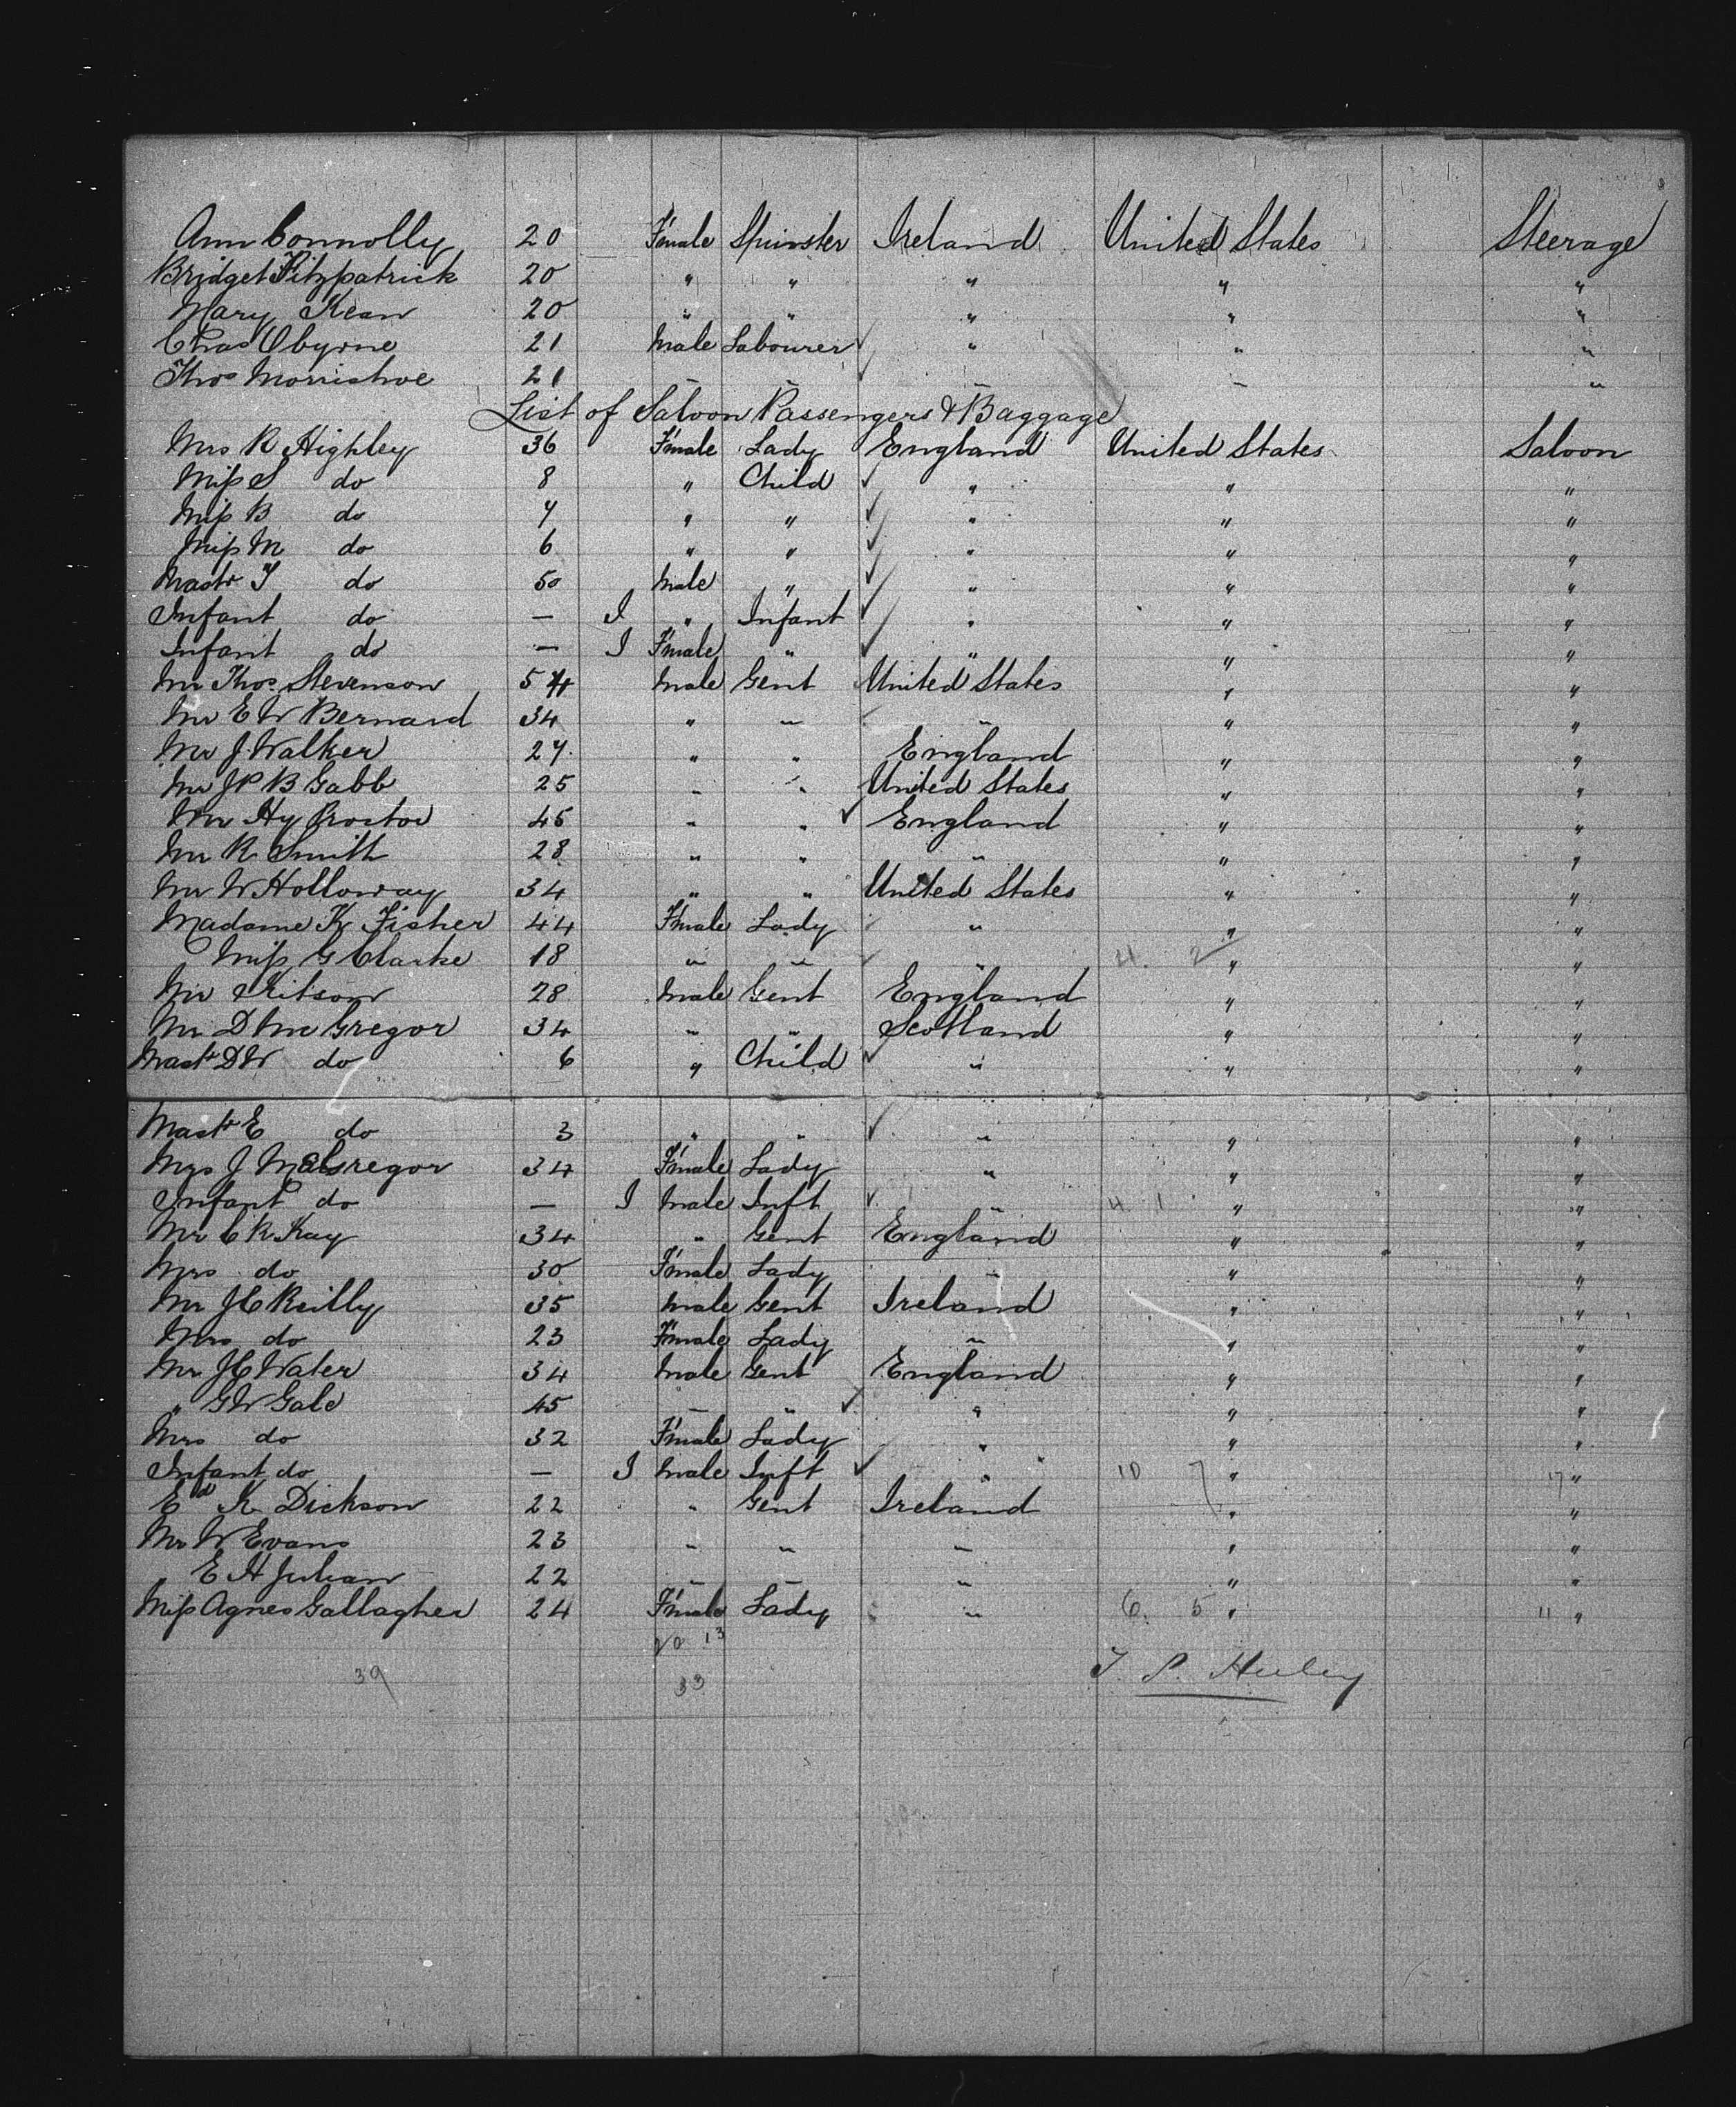 Ann Connolly 20 Female Spinster Ireland United States Steerage
Bridget Fitzpatrick 20 " " " " "
Mary Kean 20 " " " " "
Chas Obyrne 21 Male Labourer " " "
Thos Morrishoe 21 " " " " "
List of Saloon Passengers & Baggage
Mrs R Highley 36 Female Lady England United States Saloon
Miss S do 8 " Child " " "
Miss B do 7 " " " " "
Miss M do 6 " " " " "
Mastr T do 50 Male " " " "
Infant do — I " Infant " " "
Infant do — I Female " " " "
Mr Thos Stevenson 54 Male Gent United States " "
Mr E W Bernard 34 " " " " "
Mr J Walker 27 " " England " "
Mr J P B Gabb 25 " " United States " "
Mr Hy Proctor 45 " " England " "
Mr R Smith 28 " " " " "
Mr W Holloway 34 " " United States " "
Madame K Fisher 44 Female Lady " " "
Miss G Clarke 18 " " " 4. 2 " "
Mr Kitson 28 Male Gent England " "
Mr D McGregor 34 " " Scotland " "
Mastr D W do 6 " Child " " "
Mastr E do 3 " " " " "
Mrs J McGregor 34 Female Lady " " "
Infant do — I Male Inft " 4 1 " "
Mr C R Kay 34 " Gent England " "
Mrs do 30 Female Lady " " "
Mr J C Reilly 35 Male Gent Ireland " "
Mrs do 23 Female Lady " " "
Mr J C Water 34 Male Gent England " "
" G W Gale 45 " " " " "
Mrs do 32 Female Lady " " "
Infant do — I Male Inft " 10 7 " 17 "
Ed K Dickson 22 " Gent Ireland " "
Mr W Evans 23 " " " " "
" E H Julian 22 " " " " "
Miss Agnes Gallagher 24 Female Lady " 6. 5 " 11 "
20 13
39 33